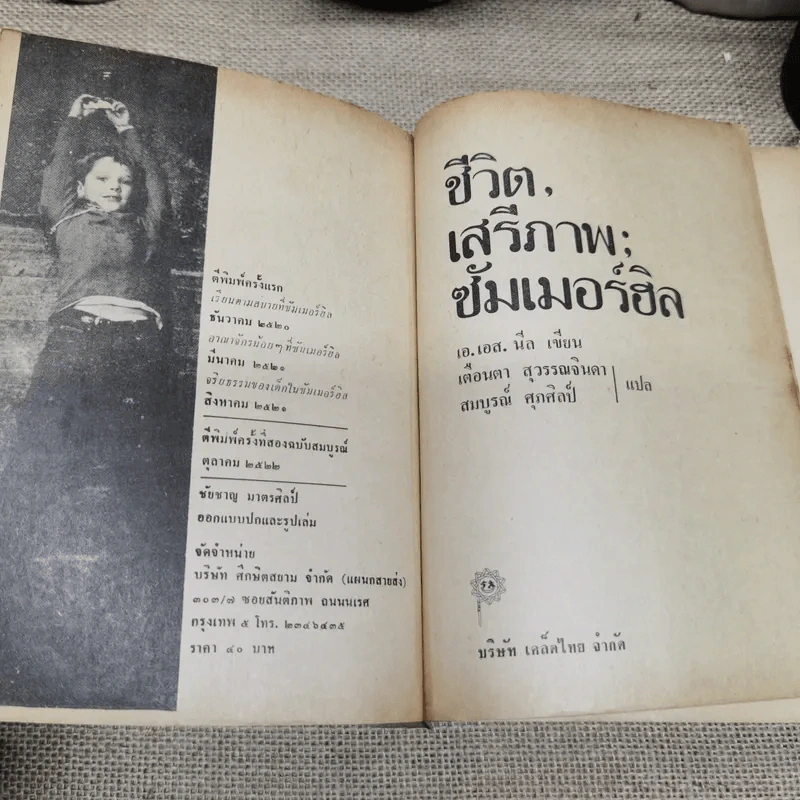 ตีพิมพ์ครั้งแรก
เรียนตามสบายที่ซัมเมอร์ฮิล
ธันวาคม ๒๕๒๐
อาณาจักรน้อยๆ ที่ซัมเมอร์ฮิล
มีนาคม ๒๕๒๑
จริยธรรมของเด็กในซัมเมอร์ฮิล
สิงหาคม ๒๕๒๑
ตีพิมพ์ครั้งที่สองฉบับสมบูรณ์
ตุลาคม ๒๕๒๒
ชัยชาญ มาตรศิลป์
ออกแบบปกและรูปเล่ม
จัดจำหน่าย
บริษัท ศึกษิตสยาม จำกัด (แผนกสายส่ง)
๓๐๓/๗ ซอยสันติภาพ ถนนนเรศ
กรุงเทพ ๕ โทร. ๒๓๔๖๔๓๕
ราคา ๔๐ บาท
ชีวิต,
เสรีภาพ;
ซัมเมอร์ฮิล
เอ.เอส. นีล เขียน
เตือนตา สุวรรณจินดา
สมบูรณ์ ศุภศิลป์
แปล
บริษัท เคล็ดไทย จำกัด